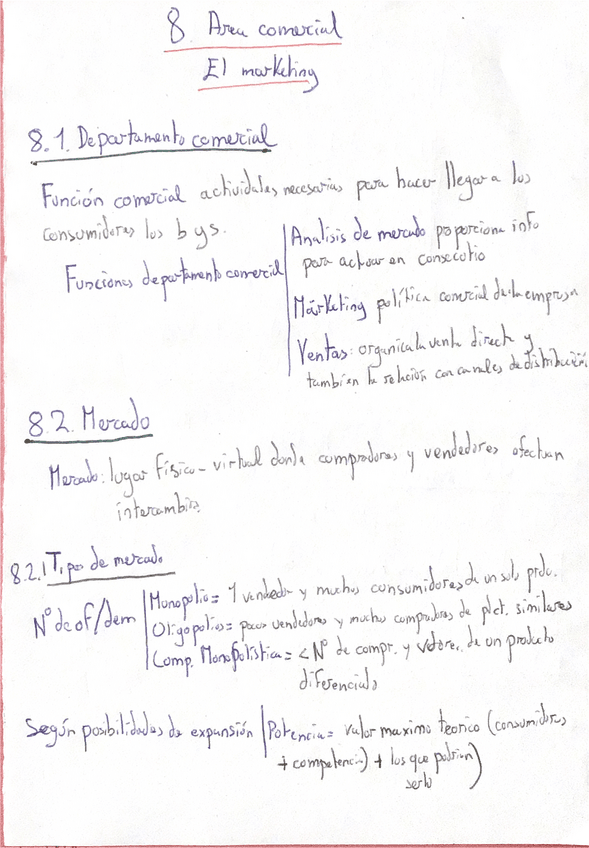 8. Area comercial
El marketing
8.1. Departamento comercial
Función comercial actividades necesarias para hacer llegar a los
consumidores los b y s.
Funciones departamento comercial
Analisis de mercado proporciona info
para actuar en
Márketing política comercial de la empresa
Ventas: organiza la venta directa y
tambien la relación con canales de distribución
8.2. Mercado
Mercado: lugar físico-virtual donde compradores y vendedores efectuan
intercambios
8.2.1 Tipos de mercado
Nº de of/dem
Monopolio = 1 vendedor y muchos consumidores de un solo prdo.
Oligopolios = pocos vendedores y muchos compradores de similares
Comp. Monopolística = < Nº de compr. y de un producto
diferenciado
Según posibilidades de expansión
Potencia = valor maximo teorico (consumidores
+ competencia) + los que podrian
serlo